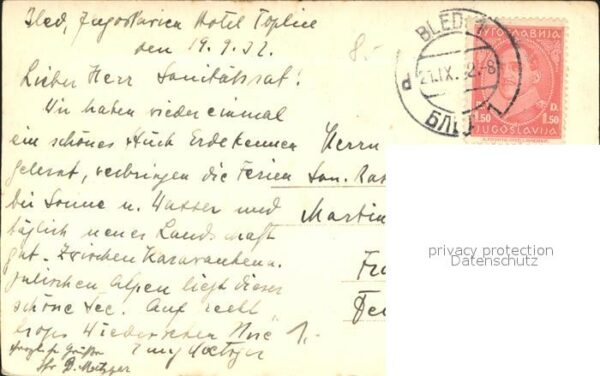 Bled, Jugoslavien Hotel Toplice
den 19.9.32.
8.-
Lieber Herr Sanitätsrat!
Wir haben wieder einmal
ein schönes Stück Erde kennen
gelernt, verbringen die Ferien
bei Sonne u. Wasser und
täglich neuer Landschaft
gut. Zwischen Karawanken u.
julischen Alpen liegt dieser
schöne See. Auf recht
frohes Wiedersehen Ihre
Herzliche Grüße
Ihr D. Metzger
Herrn
San. Rat
Martin
BLED 1
21.IX.32.-8
d
БЛЕД 1
ЈУГОСЛАВИЈА
1.50 D. 1.50
JUGOSLAVIJA
privacy protection
Datenschutz